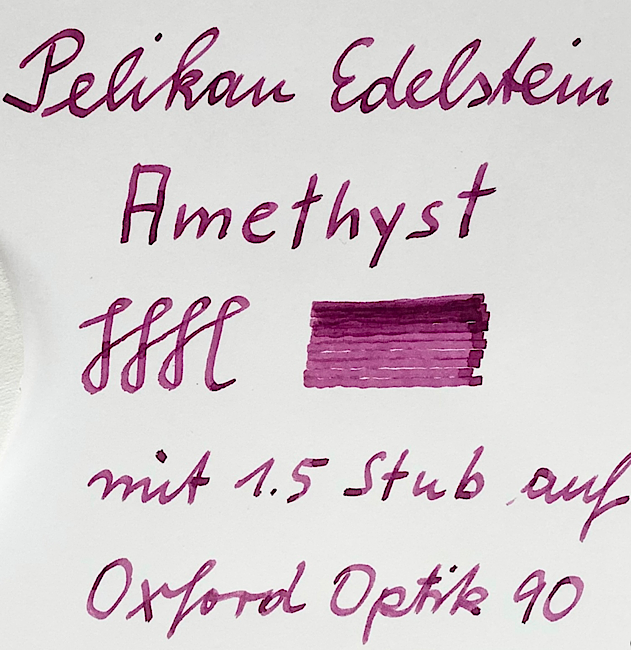 Pelikan Edelstein
Amethyst
mit 1.5 Stub auf
Oxford Optik 90